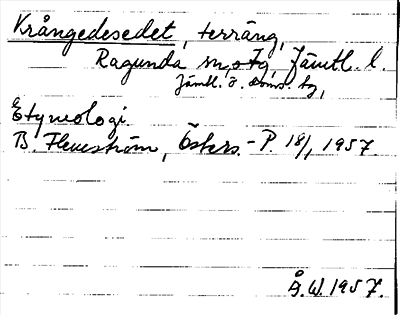 Krångedesedet, terräng,
Ragunda sn o tg, Jämtl. l.
Jämtl. ö. doms. tg,
Etymologi.
B. Flemström, Östers.-P. 18/1 1957.
Å.W. 1957.